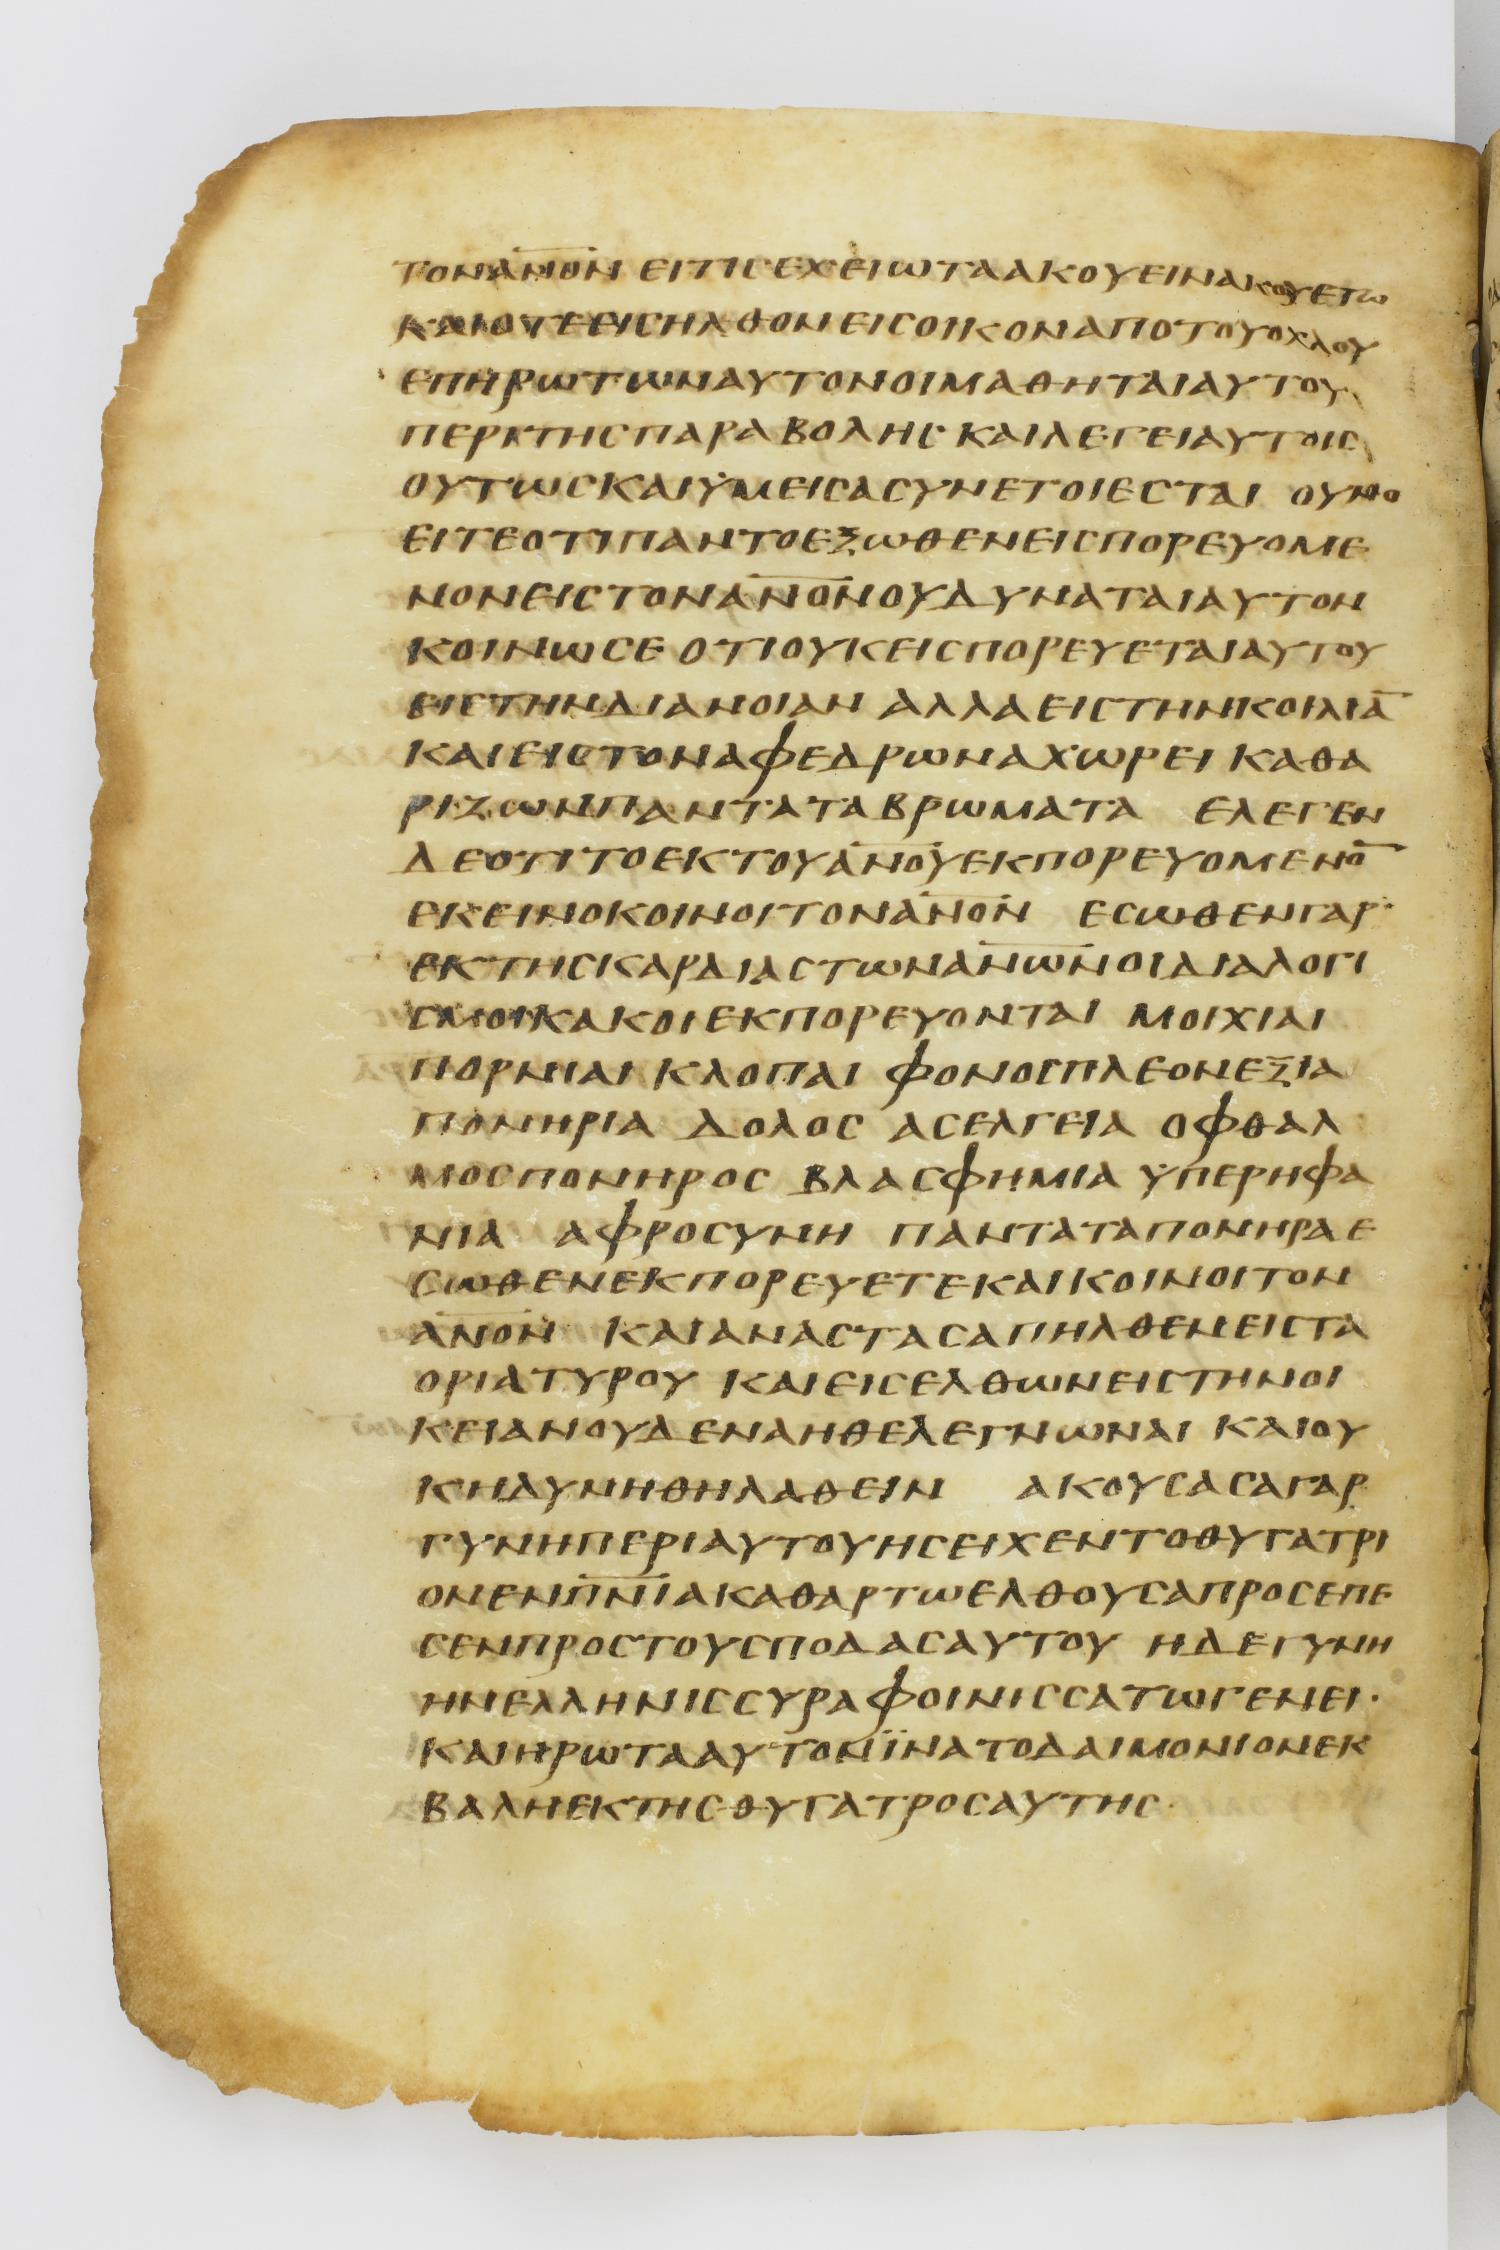 ΤΟΝΑ̅Ν̅Ο̅Ν̅ ΕΙΤΙΣΕΧΕΙΩΤΑΑΚΟΥΕΙΝΑΚΟΥΕΤΩ
ΚΑΙΟΤΕΕΙΣΗΛΘΟΝΕΙΣΟΙΚΟΝΑΠΟΤΟΥΟΧΛΟΥ
ΕΠΗΡΩΤΩΝΑΥΤΟΝΟΙΜΑΘΗΤΑΙΑΥΤΟΥ
ΠΕΡΙΤΗΣΠΑΡΑΒΟΛΗΣ· ΚΑΙΛΕΓΕΙΑΥΤΟΙΣ
ΟΥΤΩΣΚΑΙΥΜΕΙΣΑΣΥΝΕΤΟΙΕΣΤΑΙ ΟΥΝΟ
ΕΙΤΕΟΤΙΠΑΝΤΟΕΞΩΘΕΝΕΙΣΠΟΡΕΥΟΜΕ
ΝΟΝΕΙΣΤΟΝΑ̅Ν̅Ο̅Ν̅ΟΥΔΥΝΑΤΑΙΑΥΤΟΝ
ΚΟΙΝΩΣΕ ΟΤΙΟΥΚΕΙΣΠΟΡΕΥΕΤΑΙΑΥΤΟΥ
ΕΙΣΤΗΝΔΙΑΝΟΙΑΝ ΑΛΛΑΕΙΣΤΗΝΚΟΙΛΙΑ̅
ΚΑΙΕΙΣΤΟΝΑΦΕΔΡΩΝΑΧΩΡΕΙ ΚΑΘΑ
ΡΙΖΩΝΠΑΝΤΑΤΑΒΡΩΜΑΤΑ ΕΛΕΓΕΝ
ΔΕΟΤΙΤΟΕΚΤΟΥΑ̅Ν̅Ο̅Υ̅ΕΚΠΟΡΕΥΟΜΕΝΟ̅
ΕΚΕΙΝΟΚΟΙΝΟΙΤΟΝΑ̅Ν̅Ο̅Ν̅ ΕΣΩΘΕΝΓΑΡ·
ΕΚΤΗΣΚΑΡΔΙΑΣΤΩΝΑ̅Ν̅Ω̅Ν̅ΟΙΔΙΑΛΟΓΙ
ΣΜΟΙΚΑΚΟΙΕΚΠΟΡΕΥΟΝΤΑΙ ΜΟΙΧΙΑΙ
ΠΟΡΝΙΑΙ ΚΛΟΠΑΙ ΦΟΝΟΣΠΛΕΟΝΕΞΙΑ
ΠΟΝΗΡΙΑ ΔΟΛΟΣ ΑΣΕΛΓΕΙΑ ΟΦΘΑΛ
ΜΟΣΠΟΝΗΡΟΣ ΒΛΑΣΦΗΜΙΑ ΥΠΕΡΗΦΑ
ΝΙΑ ΑΦΡΟΣΥΝΗ ΠΑΝΤΑΤΑΠΟΝΗΡΑΕ
ΣΩΘΕΝΕΚΠΟΡΕΥΕΤΕΚΑΙΚΟΙΝΟΙΤΟΝ
Α̅Ν̅Ο̅Ν̅ ΚΑΙΑΝΑΣΤΑΣΑΠΗΛΘΕΝΕΙΣΤΑ
ΟΡΙΑΤΥΡΟΥ ΚΑΙΕΙΣΕΛΘΩΝΕΙΣΤΗΝΟΙ
ΚΕΙΑΝΟΥΔΕΝΑΗΘΕΛΕΓΝΩΝΑΙ ΚΑΙΟΥ
ΚΗΔΥΝΗΘΗΛΑΘΕΙΝ ΑΚΟΥΣΑΣΑΓΑΡ
ΓΥΝΗΠΕΡΙΑΥΤΟΥΗΣΕΙΧΕΝΤΟΘΥΓΑΤΡΙ
ΟΝΕΝΠ̅Ν̅Ι̅ΑΚΑΘΑΡΤΩΕΛΘΟΥΣΑΠΡΟΣΕΠΕ
ΣΕΝΠΡΟΣΤΟΥΣΠΟΔΑΣΑΥΤΟΥ ΗΔΕΓΥΝΗ
ΗΝΕΛΛΗΝΙΣΣΥΡΑΦΟΙΝΙΣΣΑΤΩΓΕΝΕΙ·
ΚΑΙΗΡΩΤΑΑΥΤΟΝΪΝΑΤΟΔΑΙΜΟΝΙΟΝΕΚ
ΒΑΛΗΕΚΤΗΣΘΥΓΑΤΡΟΣΑΥΤΗΣ·